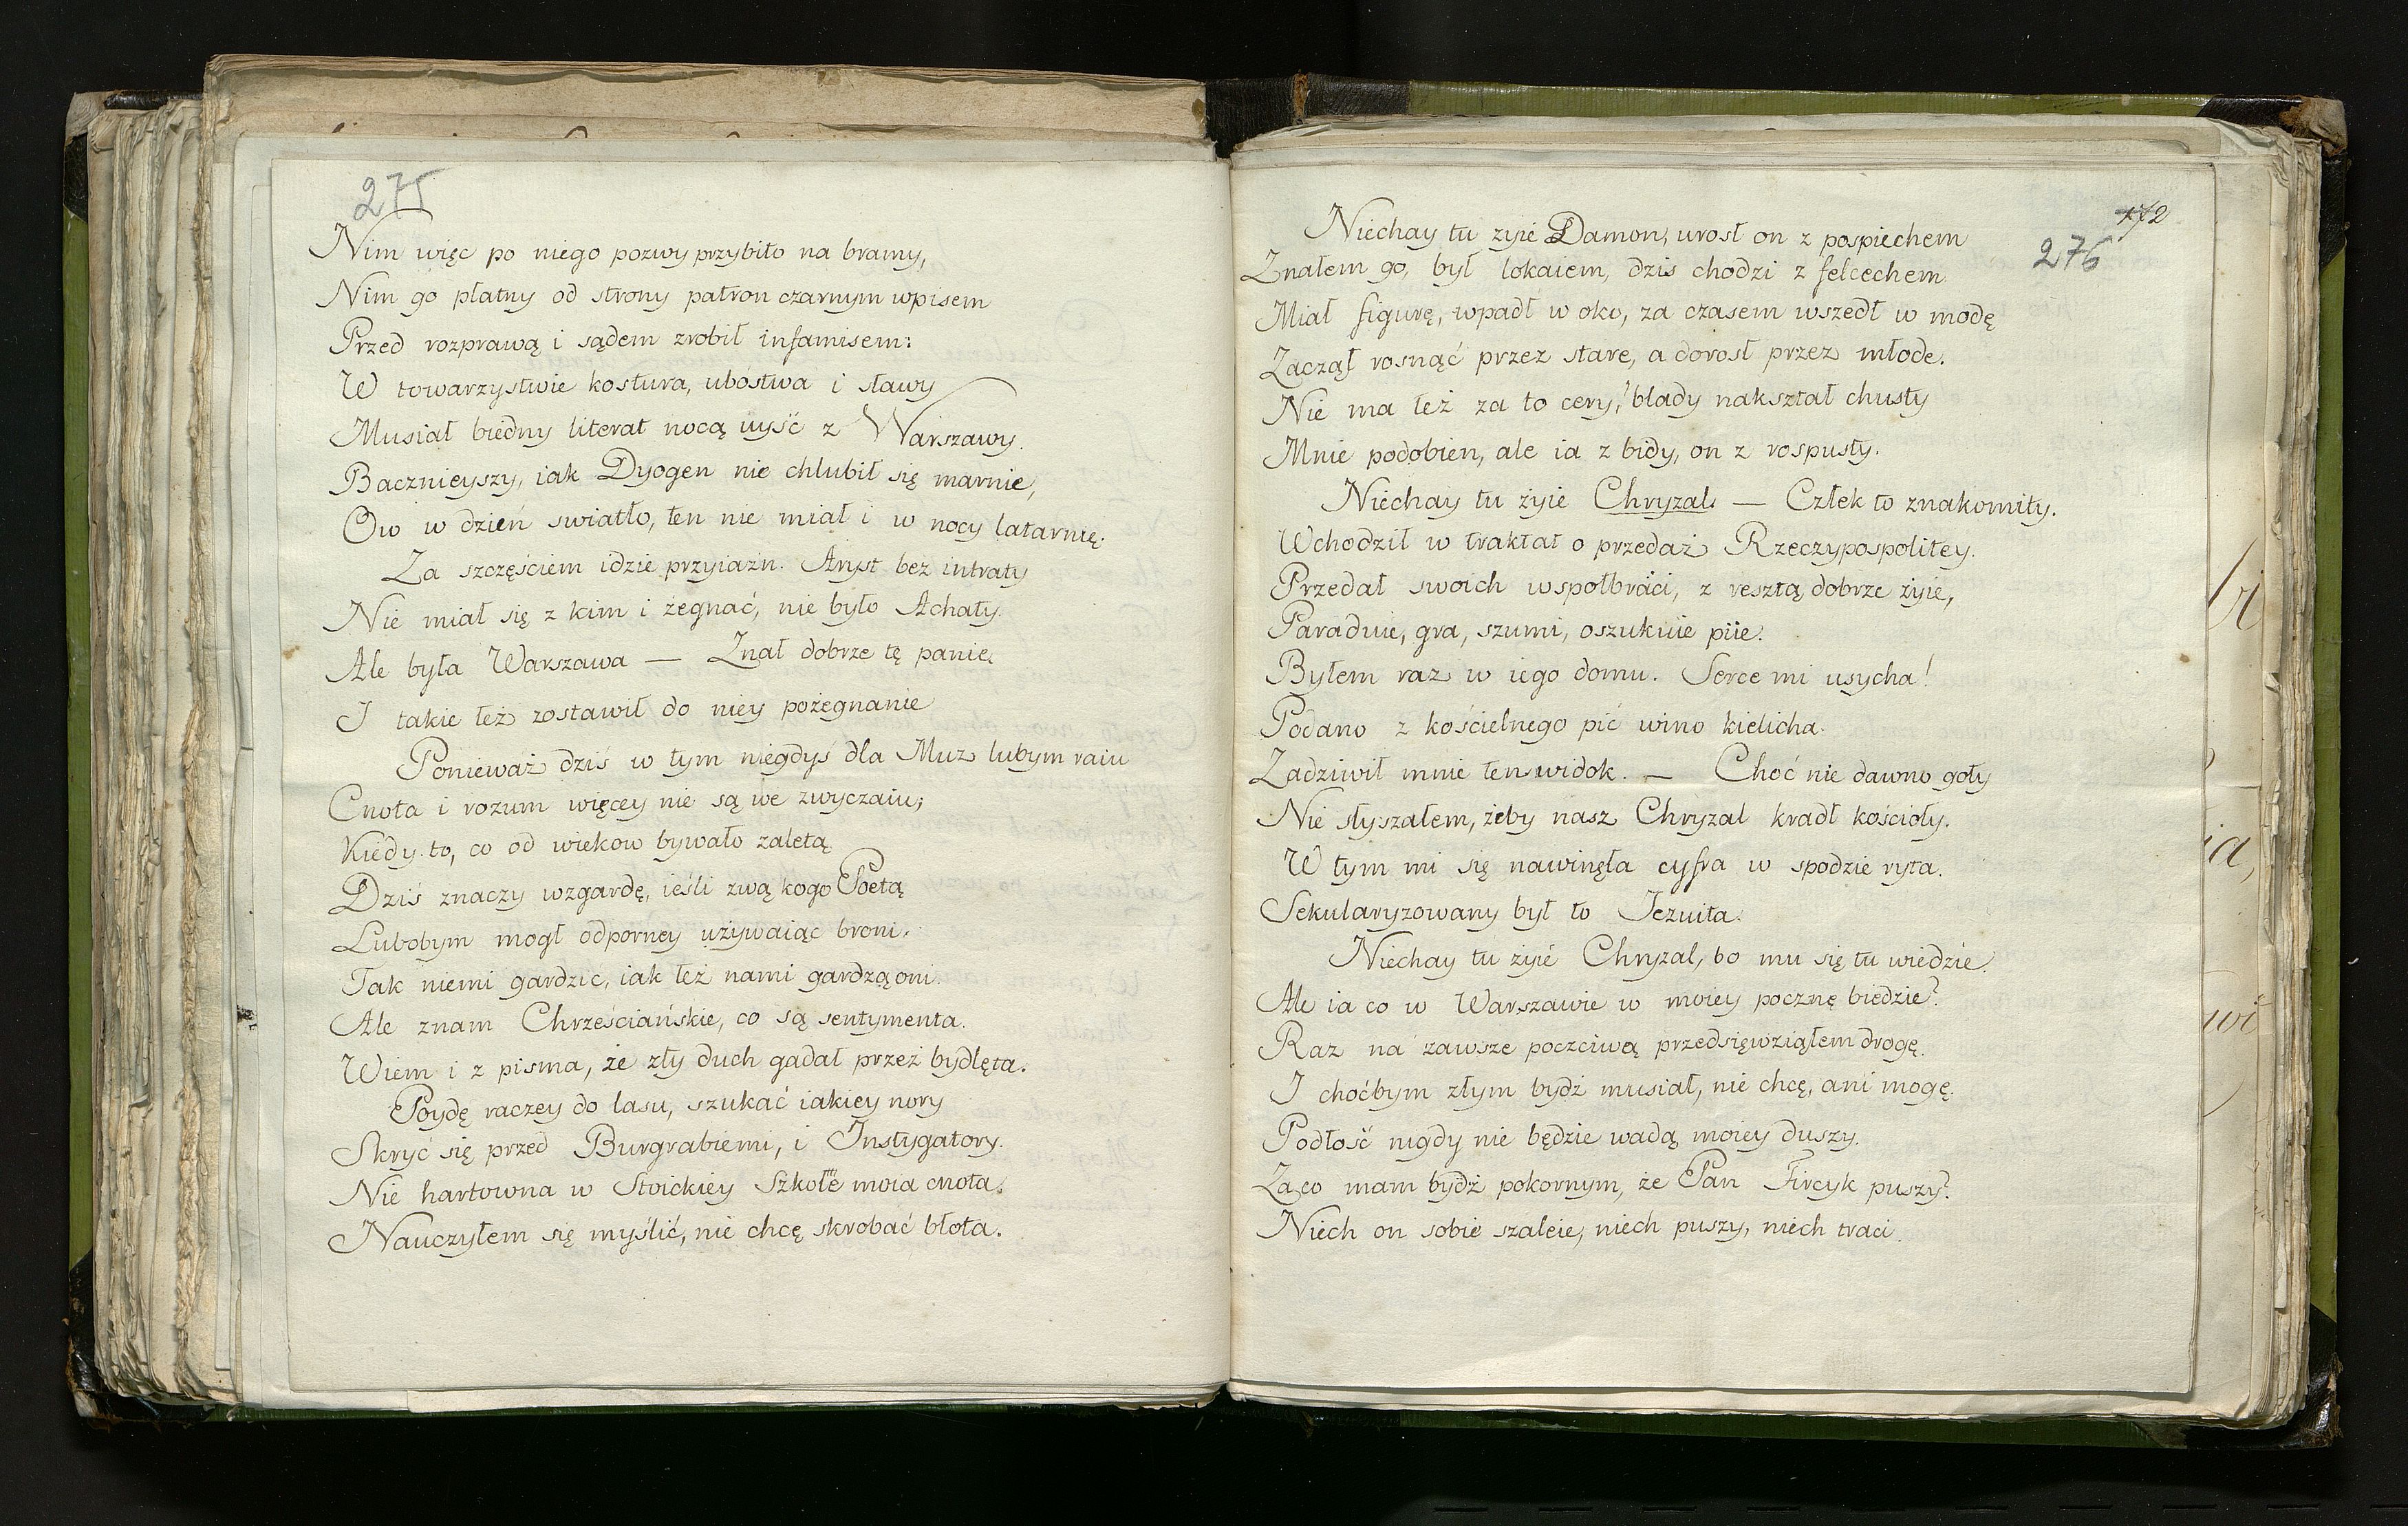 275
Nim więc po niego pozwy przybito na bramy,
Nim go płatny od strony patron czarnym wpisem
Przed rozprawą i sądem zrobił infamisem:
W towarzystwie kostura, ubóstwa i sławy
Musiał biedny literat nocą uyść z Warszawy.
Bacznieyszy, iak Dyogen nie chlubił się marnie,
Ow w dzień swiatło, ten nie miał i w nocy latarnię.
Za szczęściem idzie przyiaźn. Aryst bez intraty
Nie miał się z kim i żegnać, nie było Achaty.
Ale była Warszawa — Znał dobrze tę panię.
I takie też zostawił do niey pożegnanie
Ponieważ dziś w tym niegdyś dla Muz lubym raiu
Cnota i rozum więcey nie są we zwyczaiu;
Kiedy to, co od wiekow bywało zaletą
Dziś znaczy wzgardę, ieśli zwą kogo Poetą
Lubobym mogł odporney używaiąc broni.
Tak niemi gardzić, iak też nami gardzą oni.
Ale znam Chrześciańskie, co są sentymenta.
Wiem i z pisma, że zły duch gadał przez bydlęta.
Poydę raczey do lasu, szukać iakiey nory
Skryć się przed Burgrabiemi, i Instygatory.
Nie hartowna w Stoickiey Szkole moia cnota.
Nauczyłem się myślić, nie chcę skrobać błota.
172
276
Niechay tu żyie Damon, urosł on z pospiechem
Znałem go, był lokaiem, dzis chodzi z felcechem
Miał figurę, wpadł w oko, za czasem wszedł w modę
Zaczął rosnąć przez stare, a dorosł przez młode.
Nie ma też za to cery, blady nakształ chusty
Mnie podobien, ale ia z bidy, on z rospusty.
Niechay tu żyie Chryzal — Człek to znakomity.
Wchodził w traktat o przedaż Rzeczypospolitey.
Przedał swoich wspołbraci, z resztą dobrze żyie,
Paraduie, gra, szumi, oszukuie piie.
Byłem raz w iego domu. Serce mi usycha!
Podano z kościelnego pić wino kielicha.
Zadziwił mnie ten widok. — Choć nie dawno goły
Nie słyszałem, żeby nasz Chryzal kradł kościoły.
W tym mi się nawinęła cyfra w spodzie ryta.
Sekularyzowany był to Jezuita.
Niechay tu żyie Chryzal, bo mu się tu wiedzie.
Ale ia co w Warszawie w moiey pocznę biedzie?
Raz na zawsze poczciwą przedsięwziąłem drogę.
I choćbym złym bydź musiał, nie chcę, ani mogę.
Podłość nigdy nie będzie wadą moiey duszy.
Za co mam bydź pokornym, że Pan Fircyk puszy?
Niech on sobie szaleie, niech puszy, niech traci.